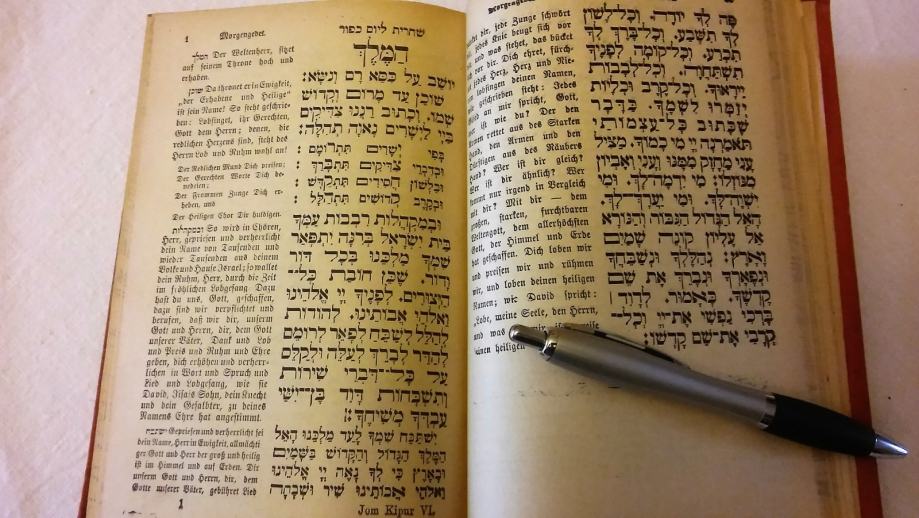 1 Morgengebet.
שחרית ליום כפור
המלך Der Weltenherr, sitzet
auf seinem Throne hoch und
erhaben.
שוכן Da thronet er in Ewigkeit,
„der Erhabene und Heilige"
ist sein Name! So steht geschrie-
ben: Lobsinget, ihr Gerechten,
Gott dem Herrn; denen, die
redlichen Herzens sind, steht des
Herrn Lob und Ruhm wohl an!
Der Redlichen Mund Dich preisen;
Der Gerechten Worte Dich be-
nedeien;
Der Frommen Zunge Dich er-
heben, und
Der Heiligen Chor Dir huldigen.
ובמקהלות So wird in Chören,
Herr, gepriesen und verherrlicht
dein Name von Tausenden und
wieder Tausenden aus deinem
Volke und Hause Israel; so wallet
dein Ruhm, Herr, durch die Zeit
im fröhlichen Lobgesang Dazu
hast du uns, Gott, geschaffen,
dazu sind wir verpflichtet und
berufen, daß wir dir, unserm
Gott und Herrn, dir, dem Gott
unserer Väter, Dank und Lob
und Preis und Ruhm und Ehre
geben, dich erhöhen und verherr-
lichen in Wort und Spruch und
Lied und Lobgesang, wie sie
David, Isais Sohn, dein Knecht
und dein Gesalbter, zu deines
Namens Ehre hat angestimmt.
ישתבח Gepriesen und verherrlicht sei
dein Name, Herr in Ewigkeit, allmächti
ger Gott und Herr der groß und heilig
ist im Himmel und auf Erden. Dir
unserm Gott und Herrn, dir, dem
Gotte unserer Väter, gebühret Lied
הַמֶּלֶךְ
יוֹשֵׁב עַל כִּסֵּא רָם וְנִשָּׂא:
שׁוֹכֵן עַד מָרוֹם וְקָדוֹשׁ
שְׁמוֹ. וְכָתוּב רַנְּנוּ צַדִּיקִים
בַּיְיָ לַיְשָׁרִים נָאוָה תְהִלָּה:
בְּפִי יְשָׁרִים תִּתְרוֹמָם:
וּבְדִבְרֵי צַדִּיקִים תִּתְבָּרַךְ:
וּבִלְשׁוֹן חֲסִידִים תִּתְקַדָּשׁ:
וּבְקֶרֶב קְדוֹשִׁים תִּתְהַלָּל:
וּבְמַקְהֲלוֹת רִבְבוֹת עַמְּךָ
בֵּית יִשְׂרָאֵל בְּרִנָּה יִתְפָּאַר
שִׁמְךָ מַלְכֵּנוּ בְּכָל דּוֹר
וָדוֹר. שֶׁכֵּן חוֹבַת כָּל־
הַיְצוּרִים. לְפָנֶיךָ יְיָ אֱלֹהֵינוּ
וֵאלֹהֵי אֲבוֹתֵינוּ. לְהוֹדוֹת
לְהַלֵּל לְשַׁבֵּחַ לְפָאֵר לְרוֹמֵם
לְהַדֵּר לְבָרֵךְ לְעַלֵּה וּלְקַלֵּס
עַל כָּל־דִּבְרֵי שִׁירוֹת
וְתִשְׁבְּחוֹת דָּוִד בֶּן־יִשַׁי
עַבְדְּךָ מְשִׁיחֶךָ:
יִשְׁתַּבַּח שִׁמְךָ לָעַד מַלְכֵּנוּ הָאֵל
הַמֶּלֶךְ הַגָּדוֹל וְהַקָּדוֹשׁ בַּשָּׁמַיִם
וּבָאָרֶץ כִּי לְךָ נָאֶה יְיָ אֱלֹהֵינוּ
וֵאלֹהֵי אֲבוֹתֵינוּ שִׁיר וּשְׁבָחָה
1
Jom Kipur VI.
dir, jede Zunge schwört
jedes Knie beugt sich vor
und was stehet, das bücket
vor dir. Dich ehret, fürch-
jedes Herz, Herz und Nie-
lobsingen deinen Namen,
geschrieben steht: Jedes
an mir spricht, Gott,
ist wie du? Der den
rettet aus des Starken
Hand, den Armen und den
Dürftigen aus des Räubers
Hand? Wer ist dir gleich?
Wer ist dir ähnlich? Wer
kommt nur irgend in Vergleich
mit dir? Mit dir — dem
großen, starken, furchtbaren
Weltengott, dem allerhöchsten
Gott, der Himmel und Erde
hat geschaffen. Dich loben wir
und preisen wir und rühmen
wir, und loben deinen heiligen
Namen; wie David spricht:
„Lobe, meine Seele, den Herrn,
und was
seinen heiligen
פֶּה לְךָ יוֹדֶה. וְכָל־לָשׁוֹן
לְךָ תִשָּׁבַע. וְכָל־בֶּרֶךְ לְךָ
תִכְרַע. וְכָל־קוֹמָה לְפָנֶיךָ
תִשְׁתַּחֲוֶה. וְכָל־לְבָבוֹת
יִירָאוּךָ. וְכָל־קֶרֶב וּכְלָיוֹת
יְזַמְּרוּ לִשְׁמֶךָ. כַּדָּבָר
שֶׁכָּתוּב כָּל־עַצְמוֹתַי
תֹּאמַרְנָה יְיָ מִי כָמוֹךָ. מַצִּיל
עָנִי מֵחָזָק מִמֶּנּוּ וְעָנִי וְאֶבְיוֹן
מִגּוֹזְלוֹ: מִי יִדְמֶה־לָּךְ. וּמִי
יִשְׁוֶה־לָּךְ. וּמִי יַעֲרָךְ־לָךְ.
הָאֵל הַגָּדוֹל הַגִּבּוֹר וְהַנּוֹרָא
אֵל עֶלְיוֹן קוֹנֵה שָׁמַיִם
וָאָרֶץ: נְהַלֶּלְךָ וּנְשַׁבֵּחֲךָ
וּנְפָאֶרְךָ וּנְבָרֵךְ אֶת שֵׁם
קָדְשֶׁךָ. כָּאָמוּר. לְדָוִד
בָּרְכִי נַפְשִׁי אֶת־יְיָ וְכָל־
קְרָבַי אֶת־שֵׁם קָדְשׁוֹ: